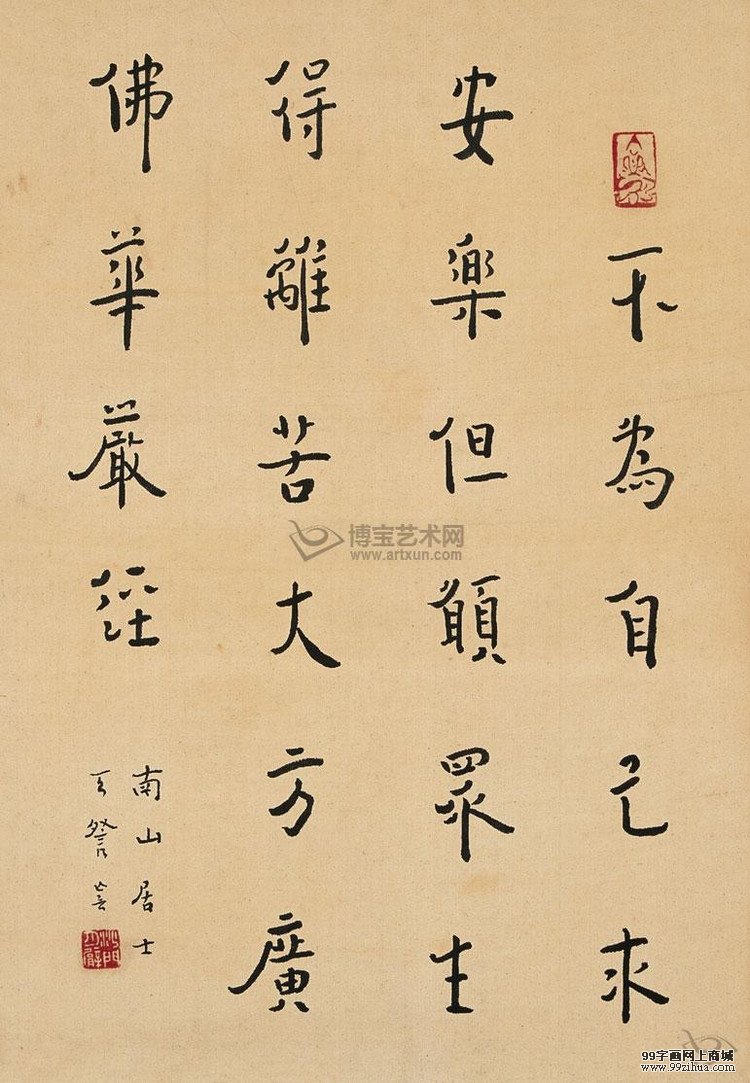 不為自己求
安樂但願眾生
得離苦大方廣
佛華嚴經
南山居士
沙門月臂
博宝艺术网
www.artxun.com
99字画网上商城
www.99zihua.com